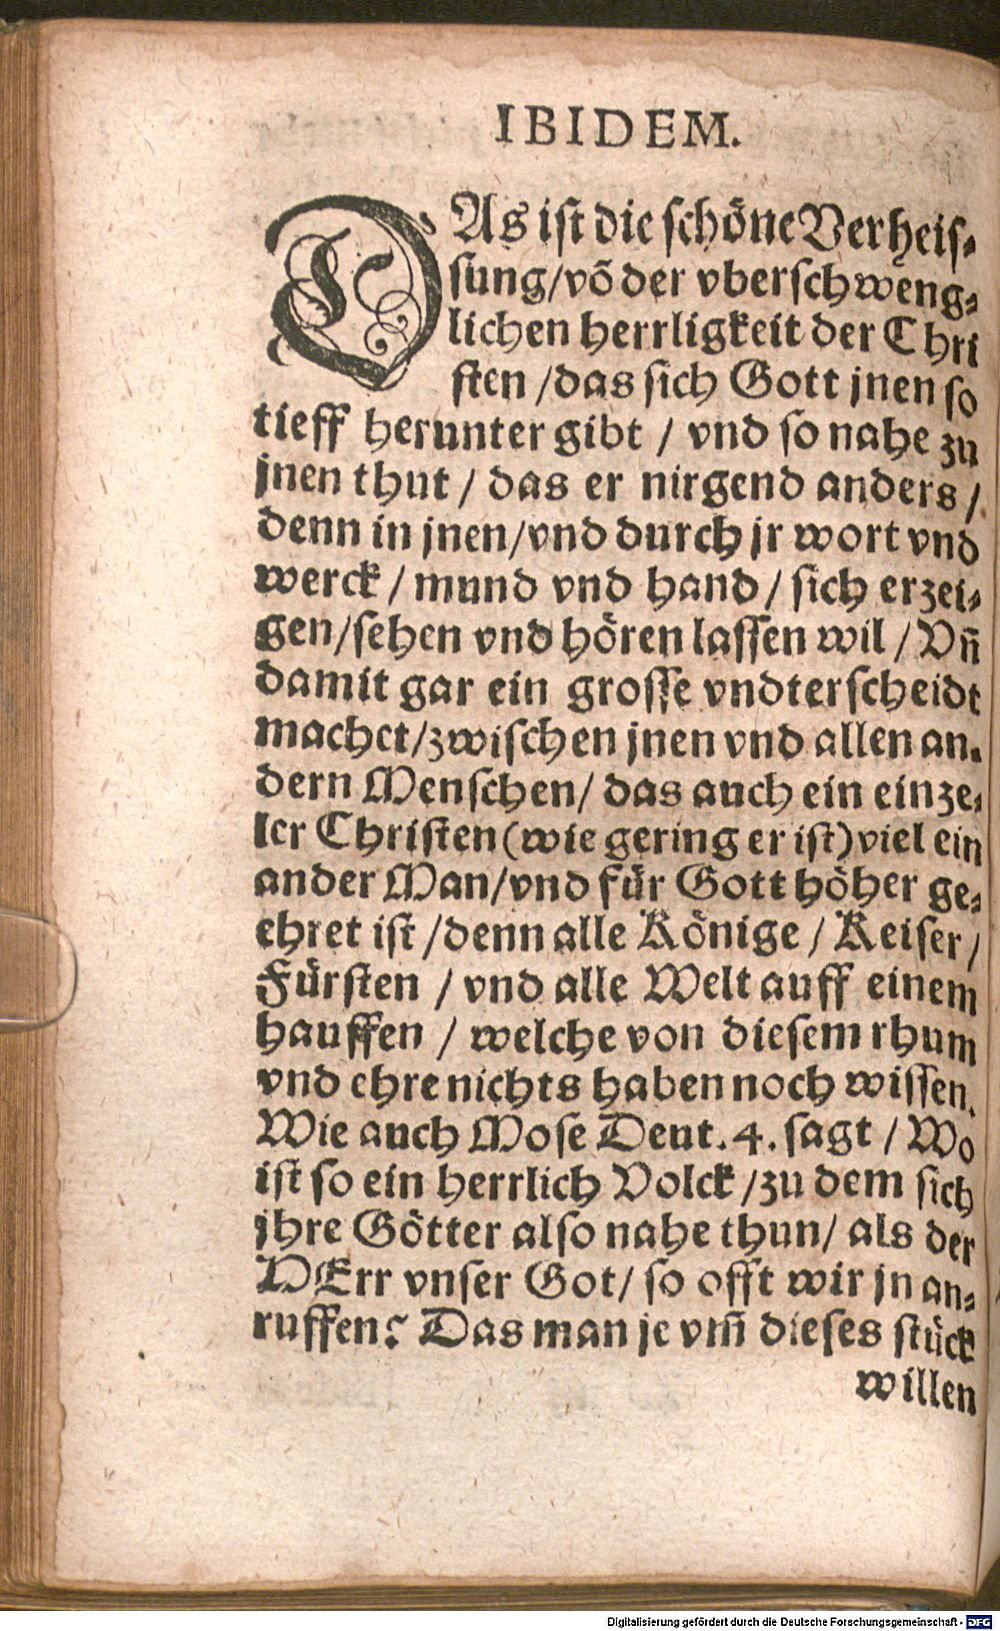 IBIDEM.
DAs ist die schöne Verheis-
sung/võ der vberschweng-
lichen herrligkeit der Chri
sten /das sich Gott jnen so
tieff herunter gibt / vnd so nahe zu
jnen thut / das er nirgend anders /
denn in jnen/vnd durch jr wort vnd
werck / mund vnd hand / sich erzei-
gen/sehen vnd hören lassen wil / Vñ
damit gar ein grosse vndterscheidt
machet/zwischen jnen vnd allen an-
dern Menschen/ das auch ein einze-
ler Christen (wie gering er ist) viel ein
ander Man/vnd für Gott höher ge-
ehret ist /denn alle Könige / Keiser /
Fürsten / vnd alle Welt auff einem
hauffen / welche von diesem rhum
vnd ehre nichts haben noch wissen.
Wie auch Mose Deut. 4. sagt / Wo
ist so ein herrlich Volck /zu dem sich
jhre Götter also nahe thun/ als der
HErr vnser Got/ so offt wir jn an-
ruffen? Das man je vm̃ dieses stück
willen
Digitalisierung gefördert durch die Deutsche Forschungsgemeinschaft - DFG